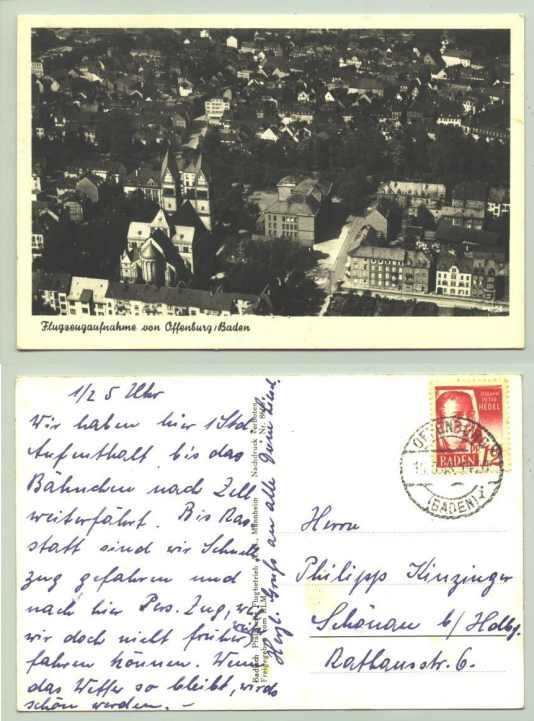 Flugzeugaufnahme von Offenburg/Baden
1/2 5 Uhr
Wir haben hier 1 Std.
Aufenthalt bis das
Bähnchen nach Zell
weiterfährt. Bis Ras
statt sind wir Schnell
zug gefahren und
nach hier Pers. Zug, weil
wir doch nicht früher
fahren können. Wenn
das Wetter so bleibt, wirds
schön werden. –
Herzl. Gruß an alle Dein
Nachdruck verboten
Freigegeben vom RLM
JOHANN
PETER
HEBEL
BADEN
OFFENBURG
(BADEN)
Herrn
Philipp Kinzinger
Schönau b/ Hdbg.
Rathausstr. 6.